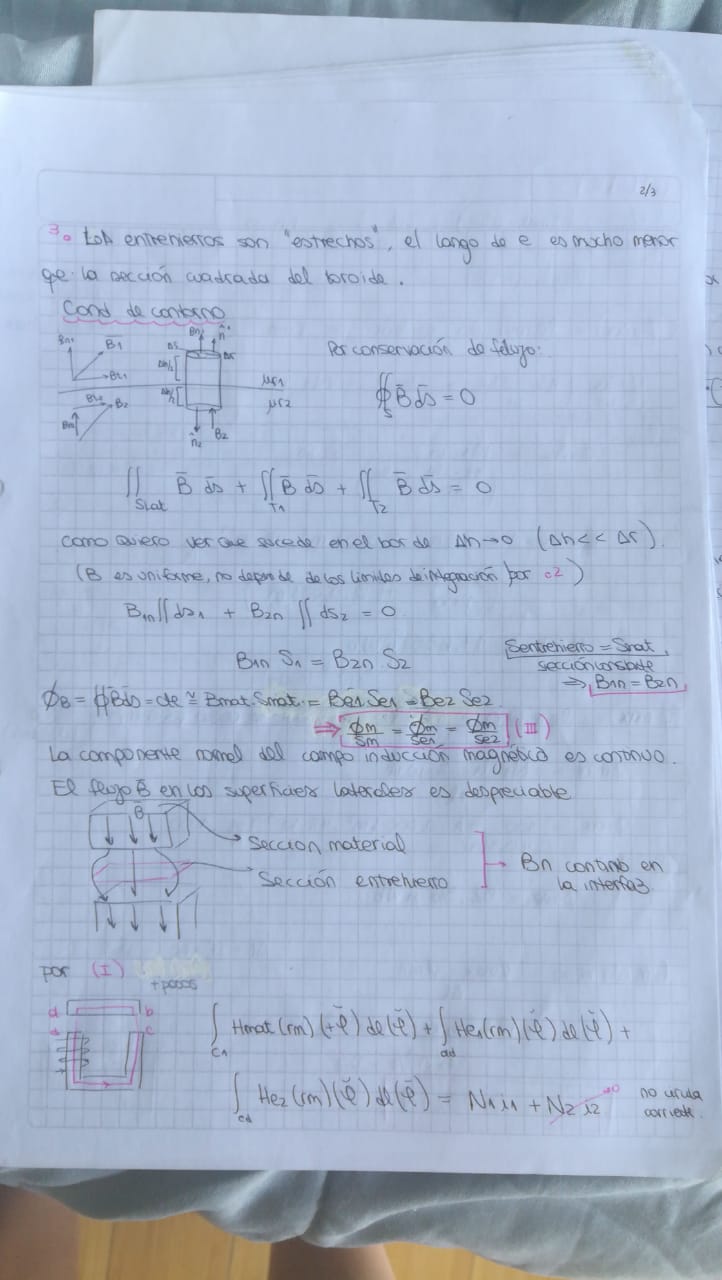 2/3
3. Los entrehierros son "estrechos", el largo de e es mucho menor
qe la sección cuadrada del toroide.
Cond de contorno
Bn1 B̄1 Bt1 Bt2 B2 Bn2
ΔS Bn1 n̂ Δr Δh/2 Δh/2 μr1 μr2 n̂2 B2
Por conservación de flujo:
∯s B̄ d̄s = 0
∬Slat B̄ d̄s + ∬T1 B̄ d̄s + ∬T2 B̄ d̄s = 0
como quiero ver que sucede en el bor de Δh→0 (Δh<< Δr).
(B es uniforme, no depende de los limites de integración por c2)
B1n ∬ ds1 + B2n ∬ ds2 = 0
B1n S1 = B2n S2
Sentrehierro = Smat
sección constante
⇒ B1n = B2n
ϕB = ∯ B̄ d̄s = cte ≅ Bmat.Smat. = Be1 Se1 = Be2 Se2
⇒ ϕm/Sm = ϕm/Se1 = ϕm/Se2 (III)
La componente normal del campo inducción magnético es continuo.
El flujo B̄ en los superficies laterales es despreciable
B̄
Sección material
Sección entrehierro
Bn continuo en
la interfaz
por (I)
+pocos
a b
d c
∫C1 Hmat(rm)(+φ̆) dl(φ̆) + ∫ad He1(rm)(φ̆) dl(φ̆) +
∫cd He2(rm)(φ̆) dl(φ̆) = N1 i1 + N2 i2 →0
no circula
corriente.